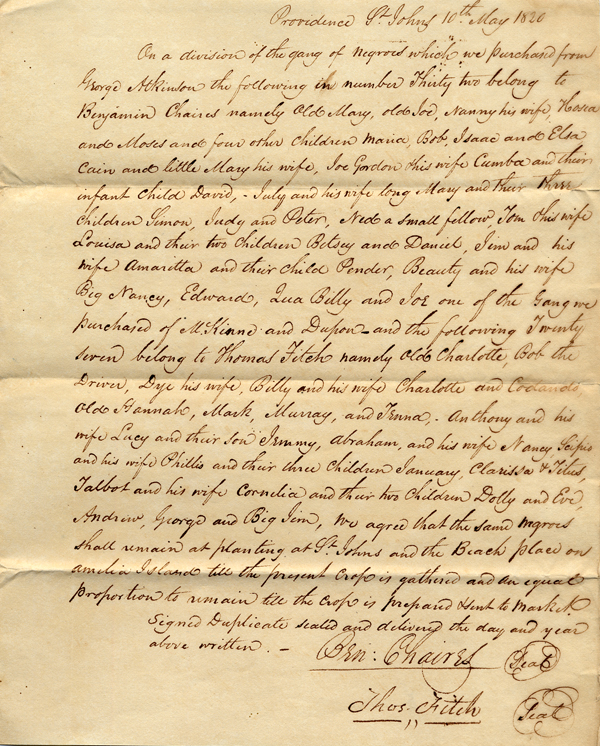 Providence St. Johns 10th May 1820
On a division of the gang of negroes which we purchased from
George Atkinson the following in number Thirty two belong to
Benjamin Chaires namely Old Mary, old Joe, Nanny his wife, Hosea
and Moses and four other children Maria, Bob, Isaac and Elsa
Cain and little Mary his wife, Joe Gordon & his wife Cumba and their
infant child David, - July and his wife long Mary and their three
children Simon, Judy and Peter, Ned a small fellow, Tom & his wife
Louisa and their two children Betsey and Daniel, Jim and his
wife Amaritta and their child Pender, Beauty and his wife
Big Nancy, Edward, Qua Billy and Joe one of the Gang we
purchased of McKinne and Dupon - and the following Twenty
seven belong to Thomas Fitch namely Old Charlotte, Bob the
Driver, Dye his wife, Billy and his wife Charlotte and Codando,
Old Hannah, Mark, Murray, and Jenna, - Anthony and his
wife Lucy and their Son Jemmy, Abraham, and his wife Nancy Scipio
and his wife Phillis and their three Children January, Clarissa & Titus,
Talbot and his wife Cornelia and their two Children Dolly and Eve,
Andrew, George and Big Jim, we agree that the same negroes
shall remain at planting at St. Johns and the Beach place on
Amelia Island till the present crop is gathered and an equal
proportion to remain till the crop is prepared & sent to market.
Signed Duplicate sealed and delivered the day and year
above written. -
Ben: Chaires Seal
Thos. Fitch Seal